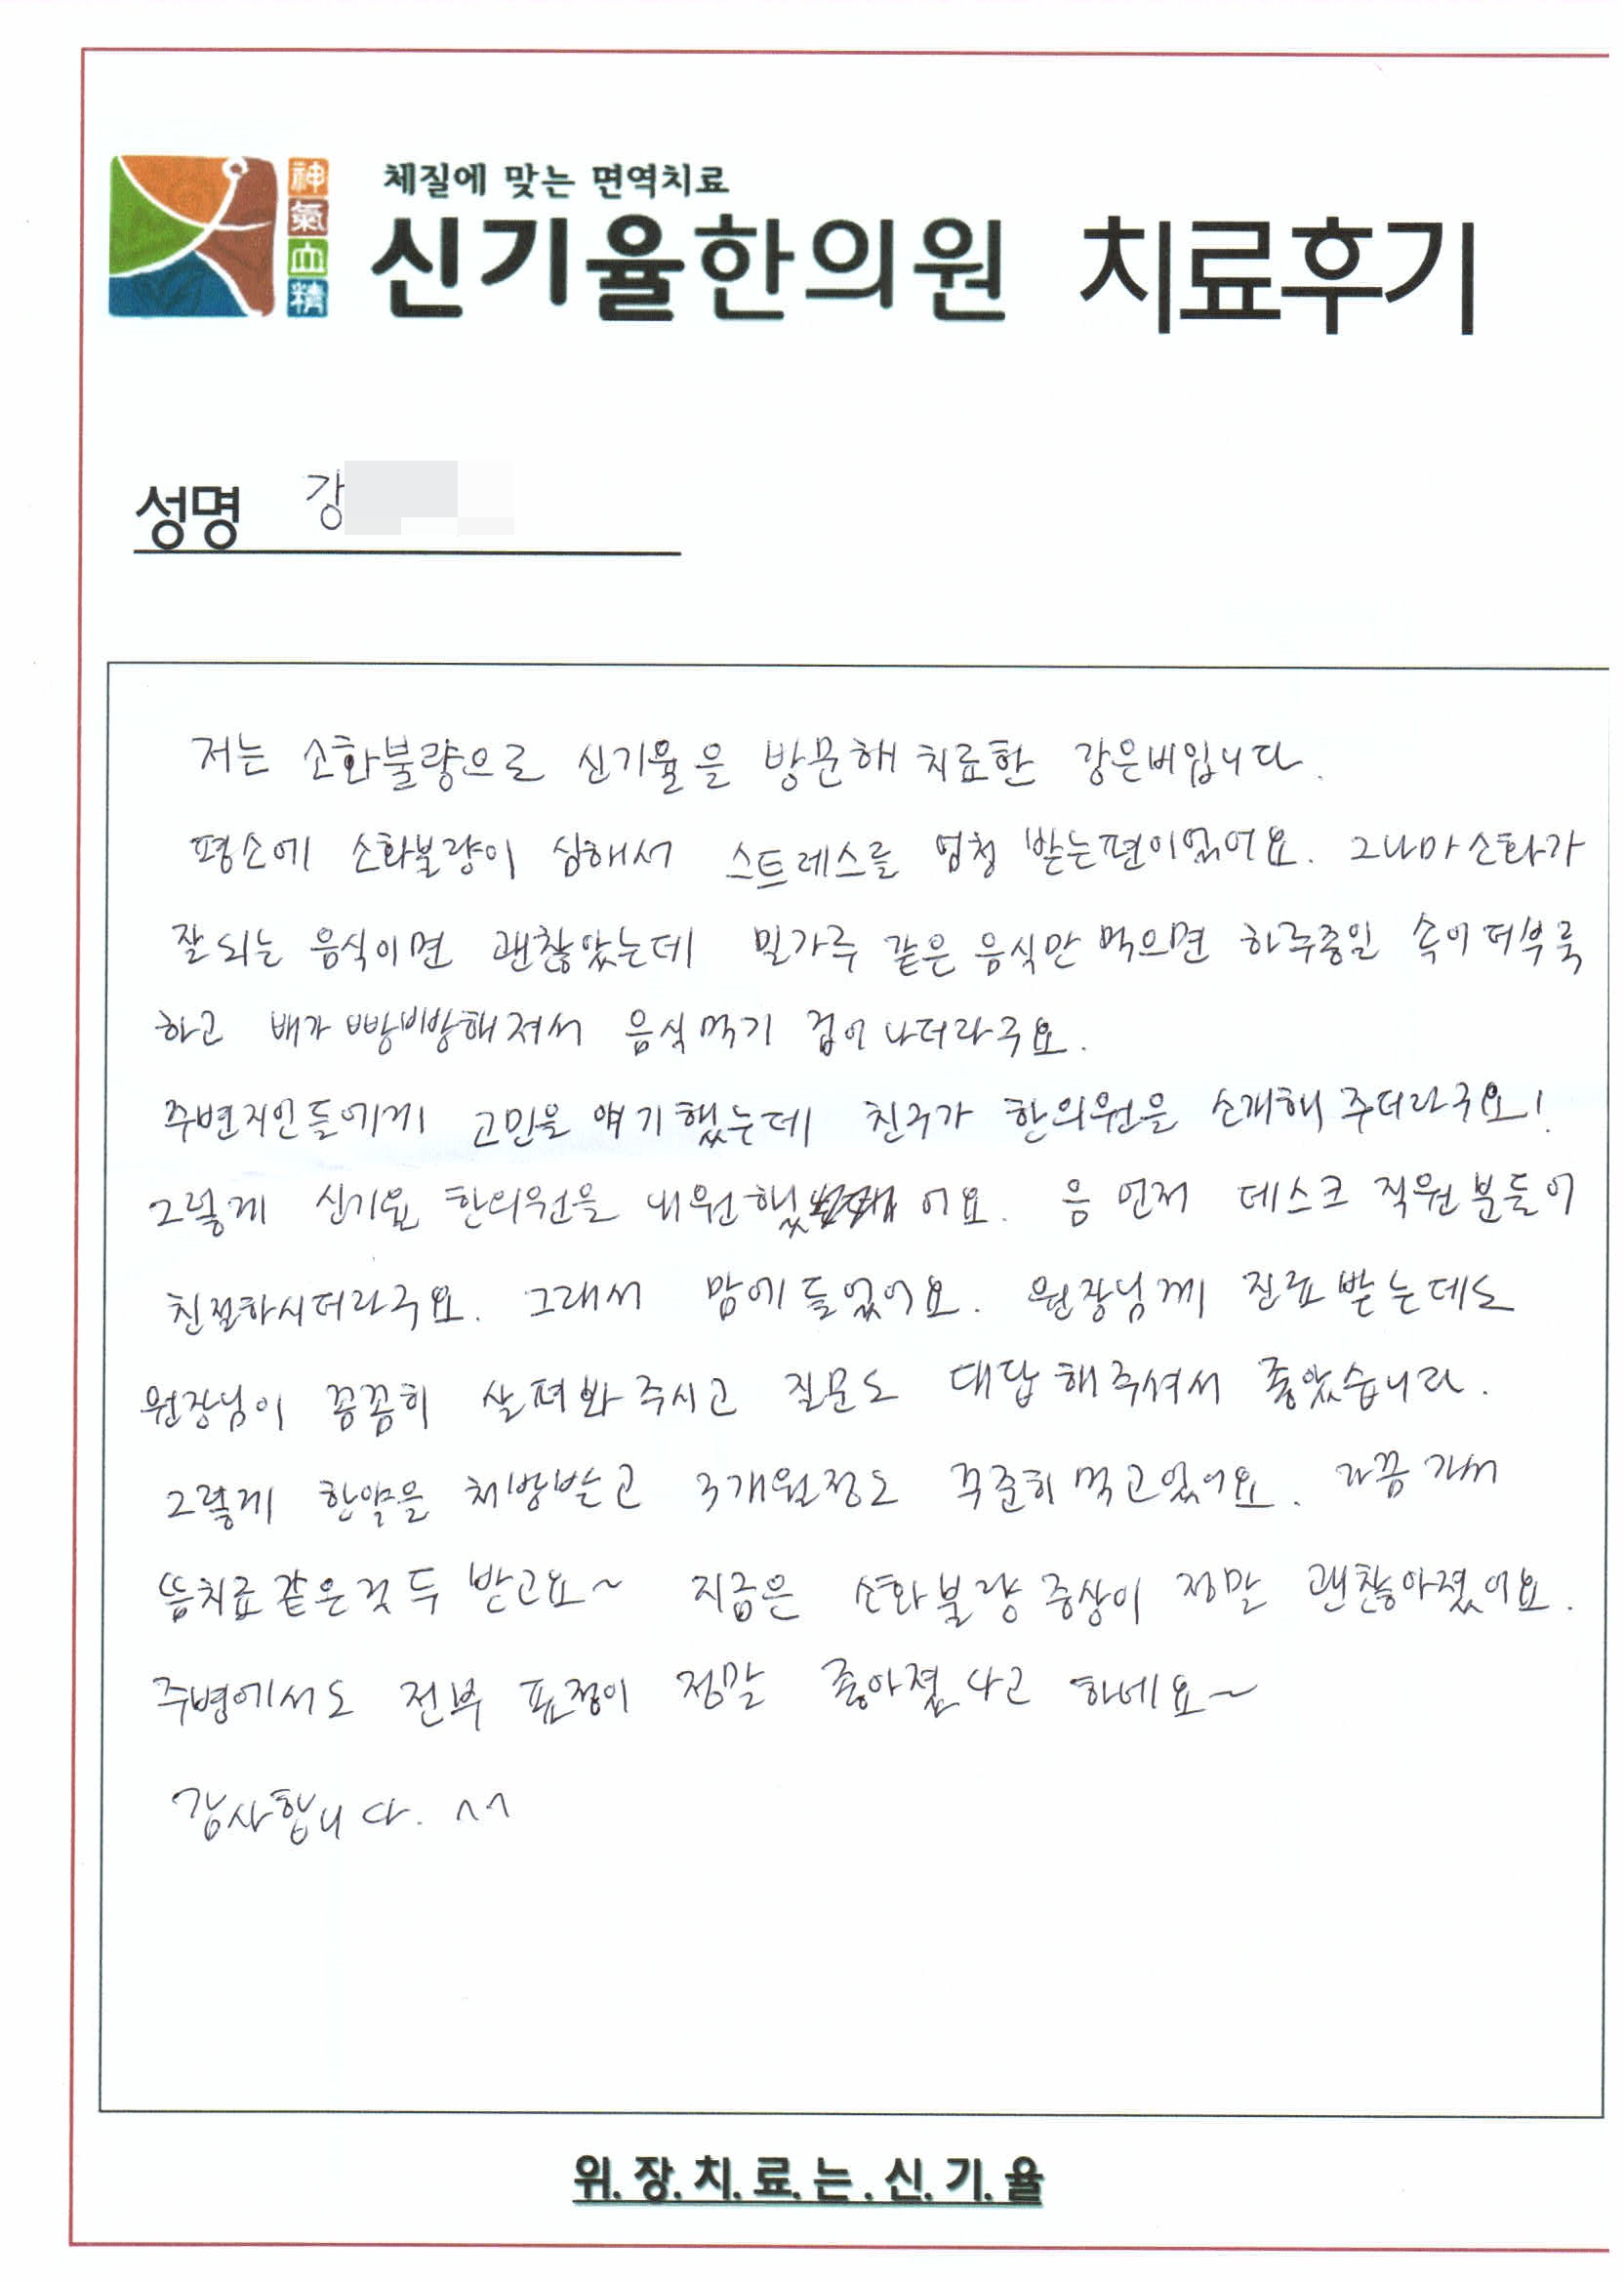 神
氣
血
精
체질에 맞는 면역치료
신기율한의원 치료후기
성명 강
저는 소화불량으로 신기율을 방문해 치료한 강은비입니다.
평소에 소화불량이 심해서 스트레스를 엄청 받는편이었어요. 그나마 소화가
잘되는 음식이면 괜찮았는데 밀가루 같은 음식만 먹으면 하루종일 속이 더부룩
하고 배가 빵빵해져서 음식먹기 겁이 나더라구요.
주변지인들에게 고민을 얘기했는데 친구가 한의원을 소개해 주더라구요!
그렇게 신기율 한의원을 내원했어요. 음 먼저 데스크 직원분들이
친절하시더라구요. 그래서 맘에 들었어요. 원장님께 진료 받는데도
원장님이 꼼꼼히 살펴봐주시고 질문도 대답해주셔서 좋았습니다.
그렇게 한약을 처방받고 3개월정도 꾸준히 먹고있어요. 가끔 가서
뜸치료 같은것두 받고요~ 지금은 소화불량 증상이 정말 괜찮아졌어요.
주변에서도 전부 표정이 정말 좋아졌다고 하네요~
감사합니다. ^^
위.장.치.료.는.신.기.율